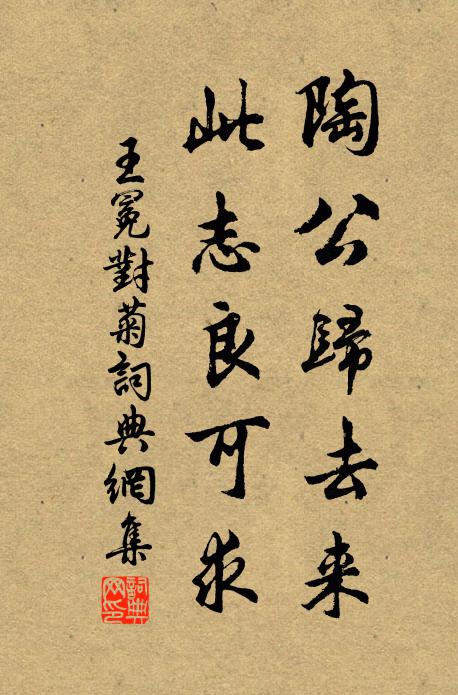 陶公歸去来
此志良可求
王冕對菊詞典網集
詞典网印